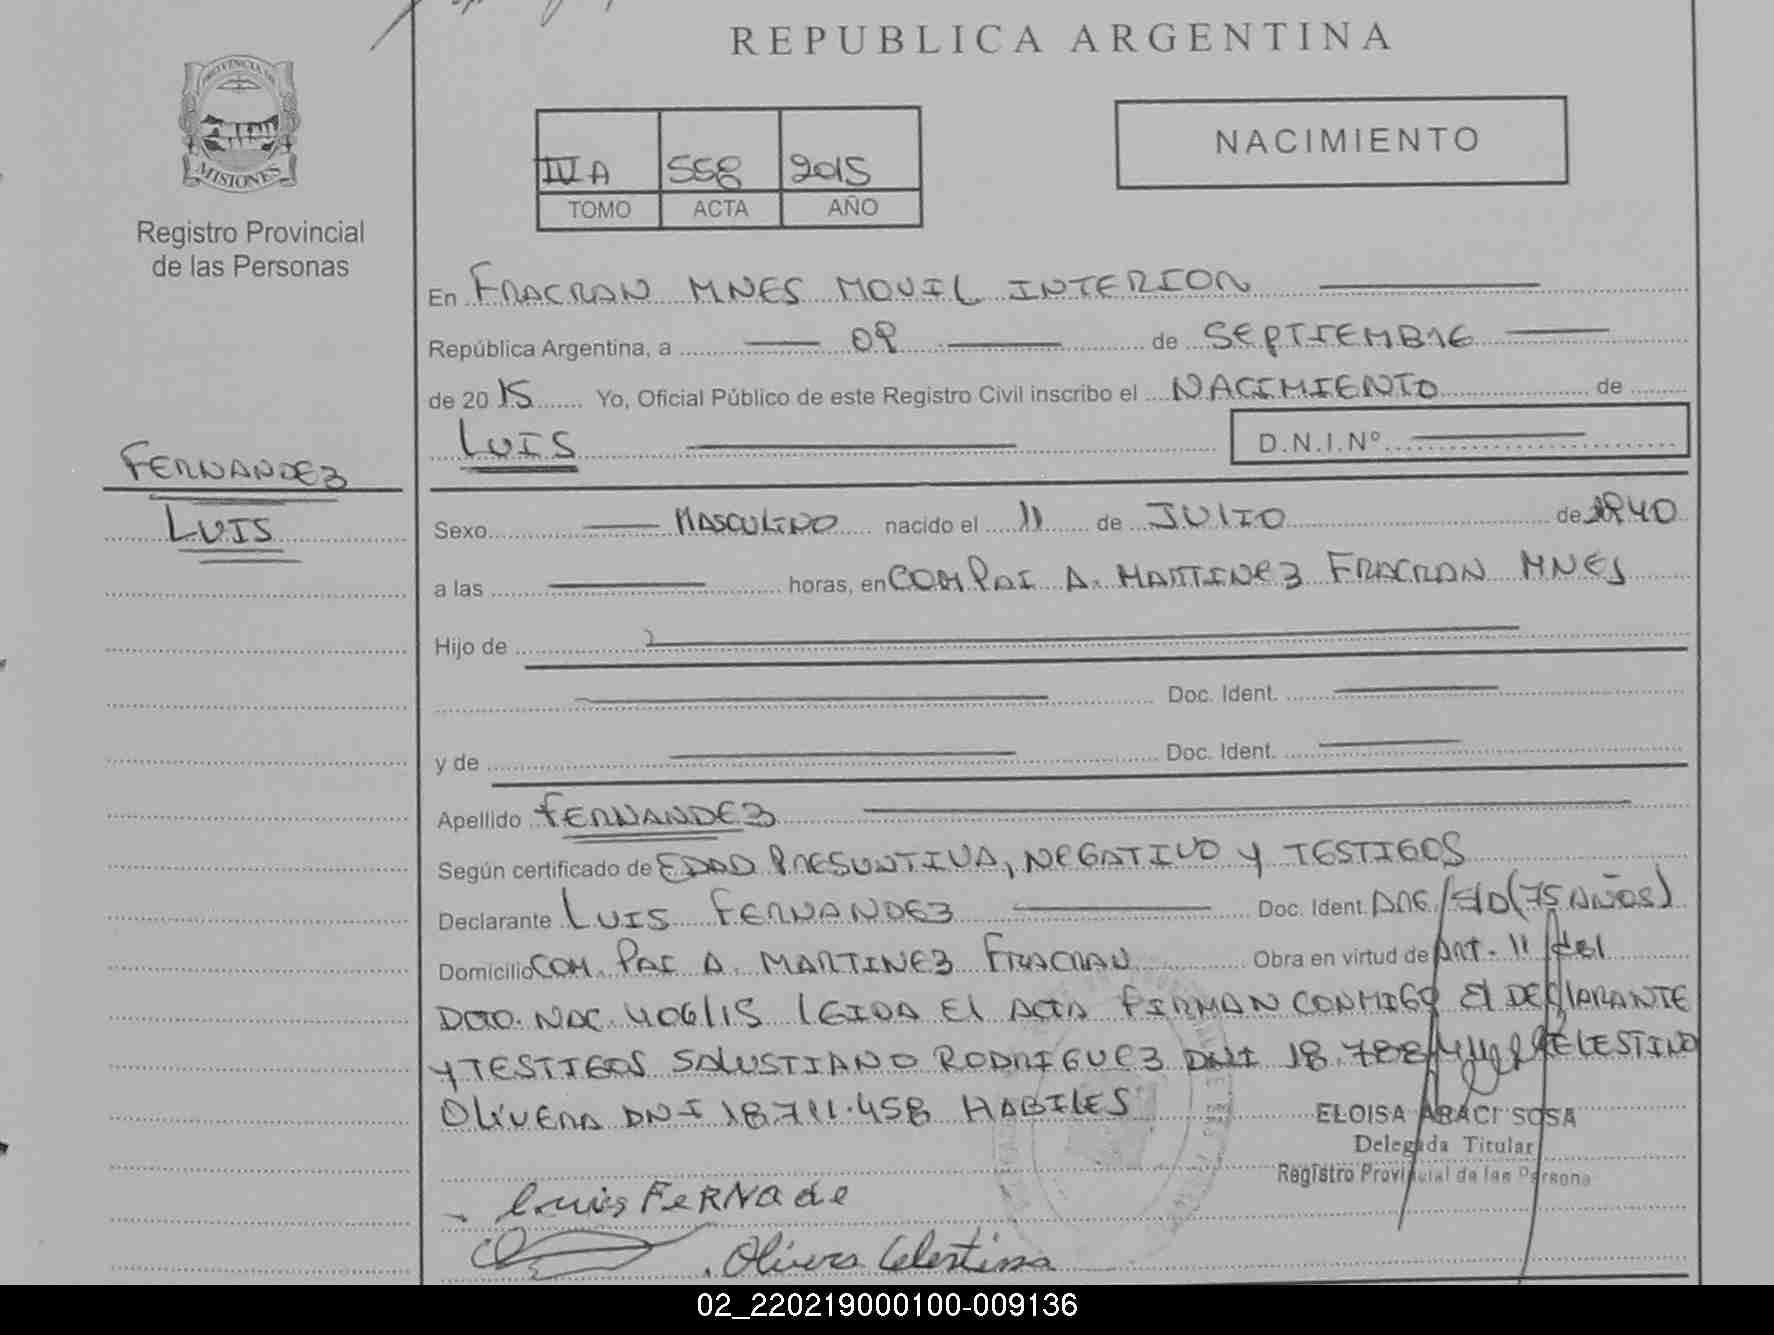 REPUBLICA ARGENTINA
PROVINCIA DE
MISIONES
Registro Provincial
de las Personas
IVA 558 2015
TOMO ACTA AÑO
NACIMIENTO
En FRACRAN MNES MOVIL INTERIOR
República Argentina, a 09 de SEPTIEMBRE
de 2015 Yo, Oficial Público de este Registro Civil inscribo el NACIMIENTO de
LUIS D.N.I.Nº
FERNANDEZ
LUIS
Sexo MASCULINO nacido el 11 de JULIO de 1940
a las horas, en COM PAI A. MARTINEZ FRACRAN MNES
Hijo de
Doc. Ident.
y de Doc. Ident.
Apellido FERNANDEZ
Según certificado de EDAD PRESUNTIVA, NEGATIVO y TESTIGOS
Declarante LUIS FERNANDEZ Doc. Ident. ARG/S/D (75 AÑOS)
Domicilio COM. PAI A. MARTINEZ FRACRAN Obra en virtud de ART. 11 del
DCTO. NAC. 406/15 LEIDA El ACTA FIRMAN CONMIGO El DEClARANTE
y TESTIGOS SALUSTIANO RODRIGUEZ DNI 18.788 CELESTINO
OLIVERA DNI 18.711.458 HABILES
ELOISA ARACI SOSA
Delegada Titular
Registro Provincial de las Persona
Luis FeRNAde
Olivera Celestino
02_220219000100-009136